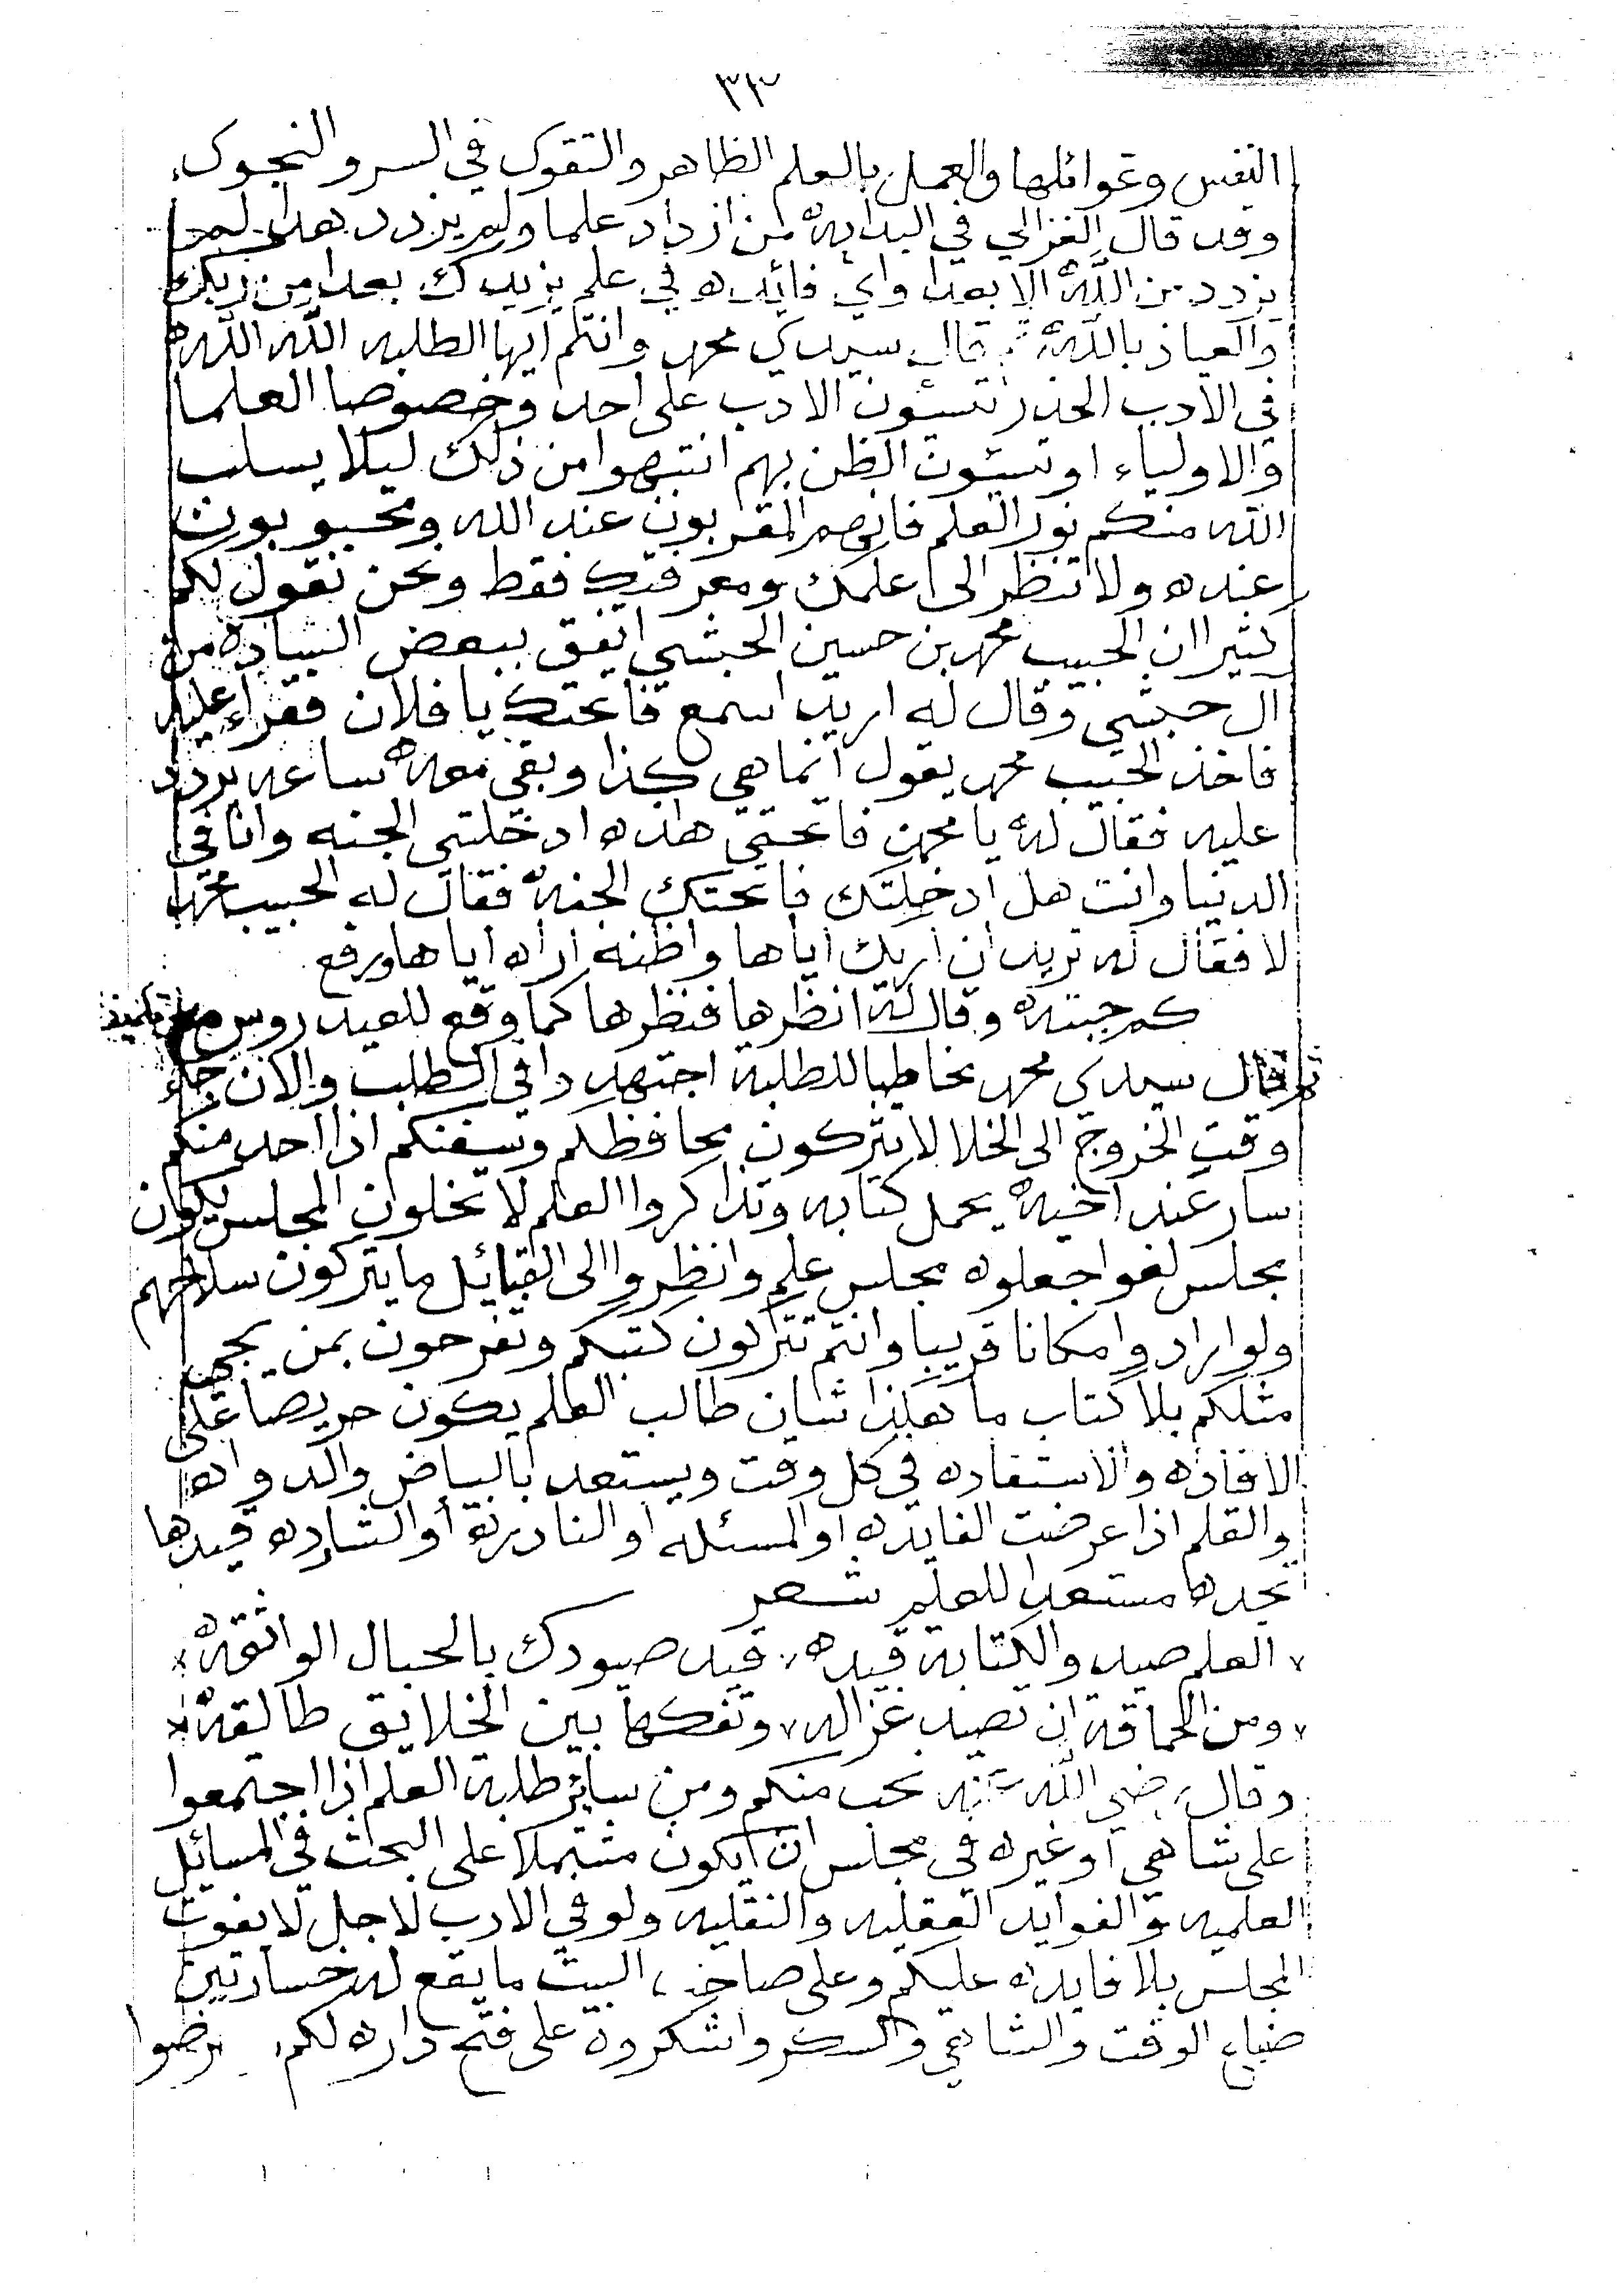 ٣٣
النفس وغوائلها والعمل بالعلم الظاهر والتقوى في السر والنجوى
وقد قال الغزالي في البدايه من ازداد علما ولم يزدد هدى لم
يزدد من الله الا بعدا واي فائده في علم يزيدك بعدا من ربك
والعياذ بالله قال سيدي محمد وانتم ايها الطلبه الله الله
في الادب الحذر تسئون الادب على احد وخصوصا العلما
والاولياء او تسئون الظن بهم انتبهوا من ذلك ليلا يسلب
الله منكم نور العلم فانهم المقربون عند الله ومحبوبون
عنده ولا تنظر الى علمك ومعرفتك فقط ونحن نقول لكم
كثيرا ان الحبيب محمد بن حسين الحبشي اتفق ببعض الساده من
ال حبشي وقال له اريد اسمع فاتحتك يا فلان فقراء عليه
فاخذ الحبيب محمد يقول انما هي كذا وبقي معه ساعه يردد
عليه فقال له يا محمد فاتحتي هذه ادخلتني الجنه وانا في
الدنيا وانت هل ادخلتك فاتحتك الجنه فقال له الحبيب محمد
لا فقال له تريد ان اريك اياها واظنه اراه اياها ورفع
كم جبته وقال له انظرها فنظرها كما وقع للعيدروس مع تلميذ
ثم قال سيدي محمد مخاطبا للطلبة اجتهدوا في الطلب والان جاء
وقت الخروج الى الخلا لا تتركون محافظكم وسفنكم اذا احد منكم
سار عند اخيه يحمل كتابه وتذاكروا العلم لا تخلون المجلس يكون
مجلس لغو اجعلوه مجلس علم وانظروا الى القبائل ما يتركون سلاحهم
ولو ارادوا مكانا قريبا وانتم تتركون كتبكم وتفرحون بمن يجي
مثلكم بلا كتاب ما هكذا شان طالب العلم يكون حريصا على
الافاده والاستفاده في كل وقت ويستعد بالبياض والدواه
والقلم اذا عرضت الفايده او المسئله او النادرة أو الشارده قيدها
تجده مستعدا للعلم شعر
العلم صيد والكتابة قيده قيد صيودك بالحبال الواثقه
ومن الحماقة ان تصيد غزاله وتفكها بين الخلايق طالقه
وقال رضي الله عنه نحب منكم ومن سائر طلبة العلم اذا اجتمعوا
على شاهي او غيره في مجلس ان يكون مشتملا على البحث في المسائل
العلميه والفوايد العقليه والنقليه ولو في الادب لاجل لا يفوت
المجلس بلا فايده عليكم وعلى صاحب البيت ما يقع له خسارتين
ضياع الوقت والشاهي والسكر واشكروه على فتح داره لكم